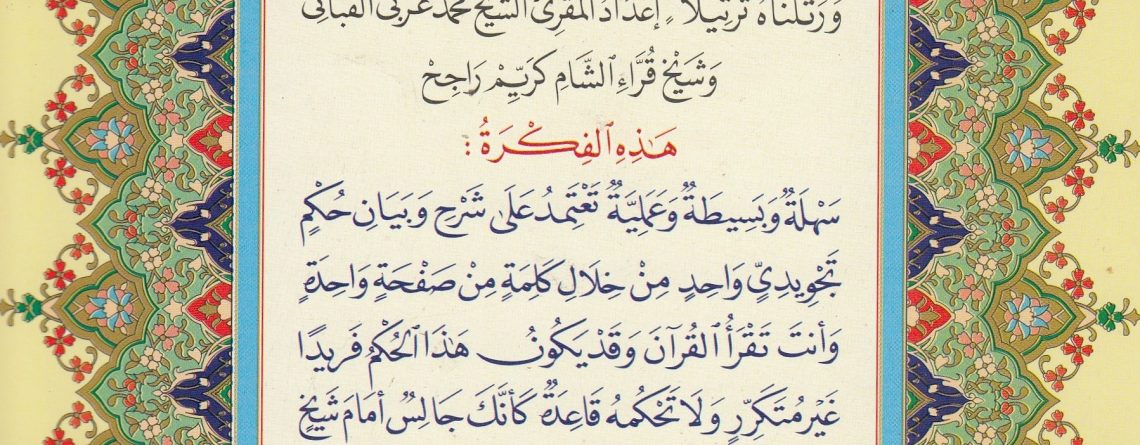 وَرَتَّلْنَاهُ تَرْتِيلًا إِعْدَادُ المُقْرِئِ الشَّيْخِ مُحَمَّد عَرَبِي القَبَّانِي
وَشَيْخِ قُرَّاءِ ٱلشَّامِ كَرَيِّمْ رَاجِحْ
هَٰذِهِ ٱلْفِكْرَةُ :
سَهْلَةٌ وَبَسِيطَةٌ وَعَمَلِيَّةٌ تَعْتَمِدُ عَلَى شَرْحِ وَبَيَانِ حُكْمٍ
تَجْوِيدِيٍّ وَاحِدٍ مِنْ خِلَالِ كَلِمَةٍ مِنْ صَفْحَةٍ وَاحِدَةٍ
وَأَنْتَ تَقْرَأُ ٱلْقُرآنَ وَقَدْ يَكُونُ هَٰذَا ٱلْحُكْمُ فَرِيدًا
غَيْرَ مُتَكَرِّرٍ وَلَا تَحْكُمهُ قَاعِدَةٌ كَأَنَّكَ جَالِسٌ أَمَامَ شَيْخٍ